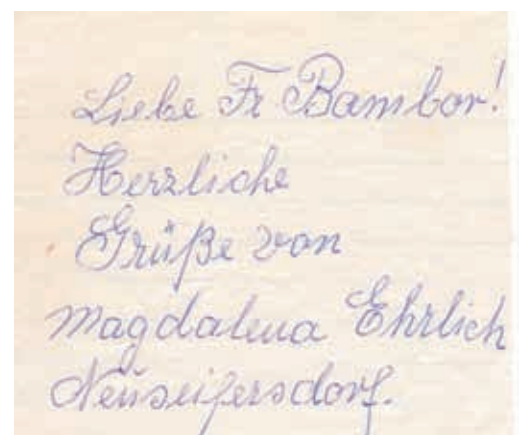 Liebe Fr Bambor!
Herzliche
Grüße von
Magdalena Ehrlich
Neuseifersdorf.